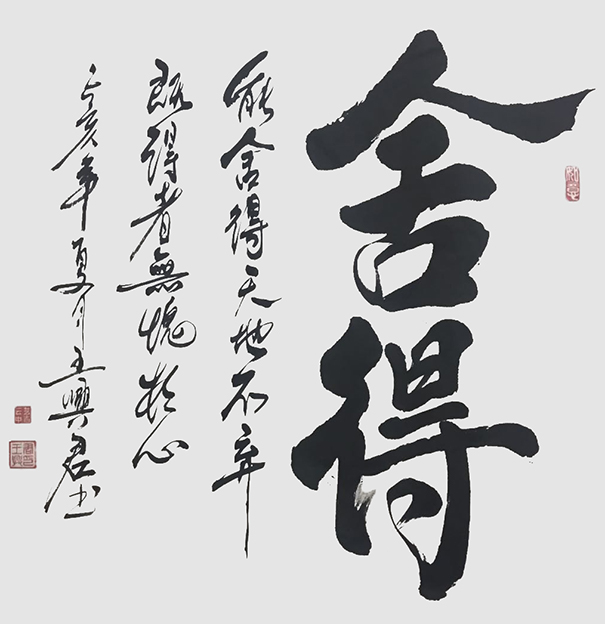 舍得
能舍得天地不弃
既得者無愧於心
亥年夏月王興君书